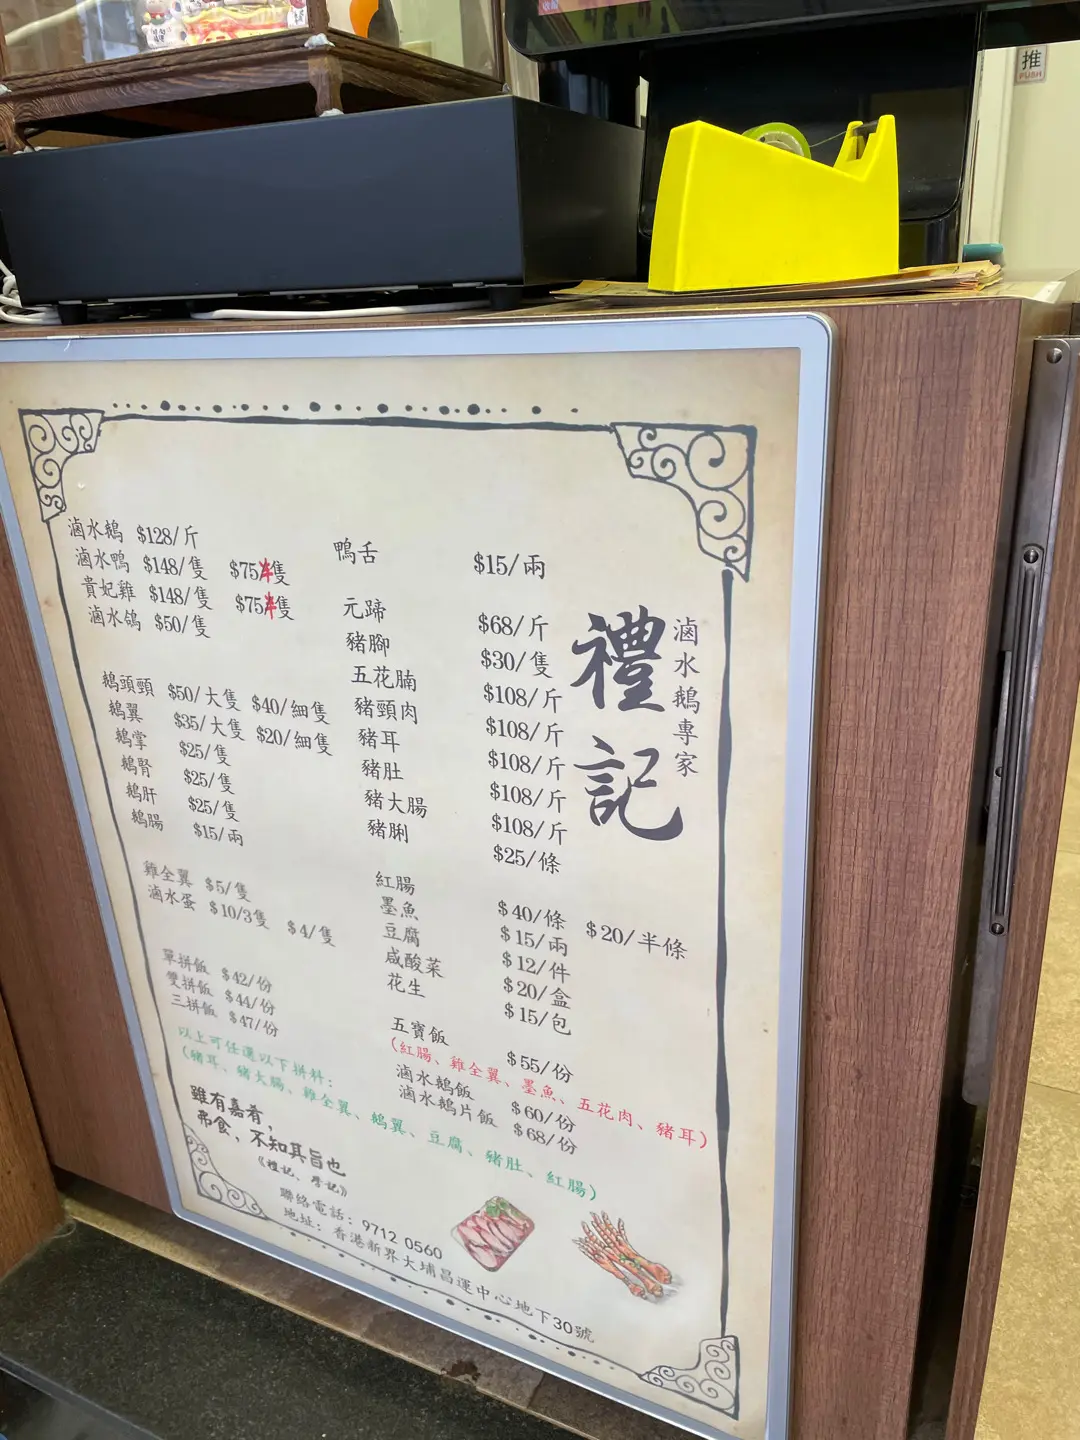 推
PUSH
滷水鵝 $128/斤
滷水鴨 $148/隻 $75/半隻
貴妃雞 $148/隻 $75/半隻
滷水鴿 $50/隻
鵝頭頸 $50/大隻 $40/細隻
鵝翼 $35/大隻 $20/細隻
鵝掌 $25/隻
鵝腎 $25/隻
鵝肝 $25/隻
鵝腸 $15/兩
雞全翼 $5/隻
滷水蛋 $10/3隻 $4/隻
單拼飯 $42/份
雙拼飯 $44/份
三拼飯 $47/份
以上可任選以下拼料：
(豬耳、豬大腸、雞全翼、鵝翼、豆腐、豬肚、紅腸)
鴨舌 $15/兩
元蹄 $68/斤
豬腳 $30/隻
五花腩 $108/斤
豬頸肉 $108/斤
豬耳 $108/斤
豬肚 $108/斤
豬大腸 $108/斤
豬脷 $25/條
紅腸 $40/條 $20/半條
墨魚 $15/兩
豆腐 $12/件
咸酸菜 $20/盒
花生 $15/包
五寶飯 $55/份
(紅腸、雞全翼、墨魚、五花肉、豬耳)
滷水鵝飯 $60/份
滷水鵝片飯 $68/份
滷水鵝專家
禮記
雖有嘉肴，
弗食，不知其旨也
《禮記、學記》
聯絡電話：9712 0560
地址：香港新界大埔昌運中心地下30號